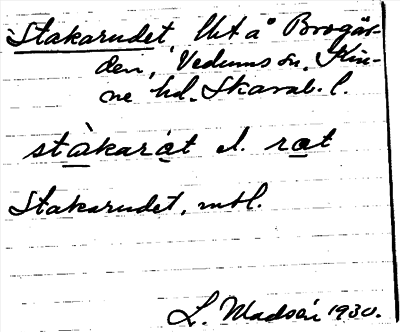 Stakarudet, Ut å Brogår-
den, Vedums sn. Kin-
ne hd. Skarab. l.
stàkarát el. rat
Stakarudet, mtl.
L. Madsén 1930.